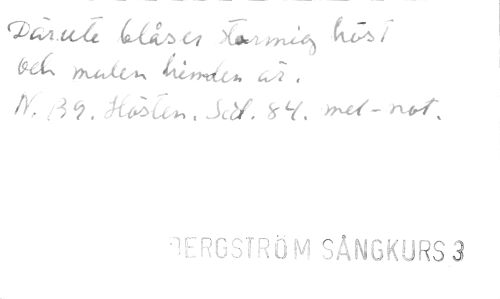 Därute blåser stormig höst
och mulen himden är.
N. B9. Hösten. Sid. 84. mel-not.
BERGSTRÖM SÅNGKURS 3